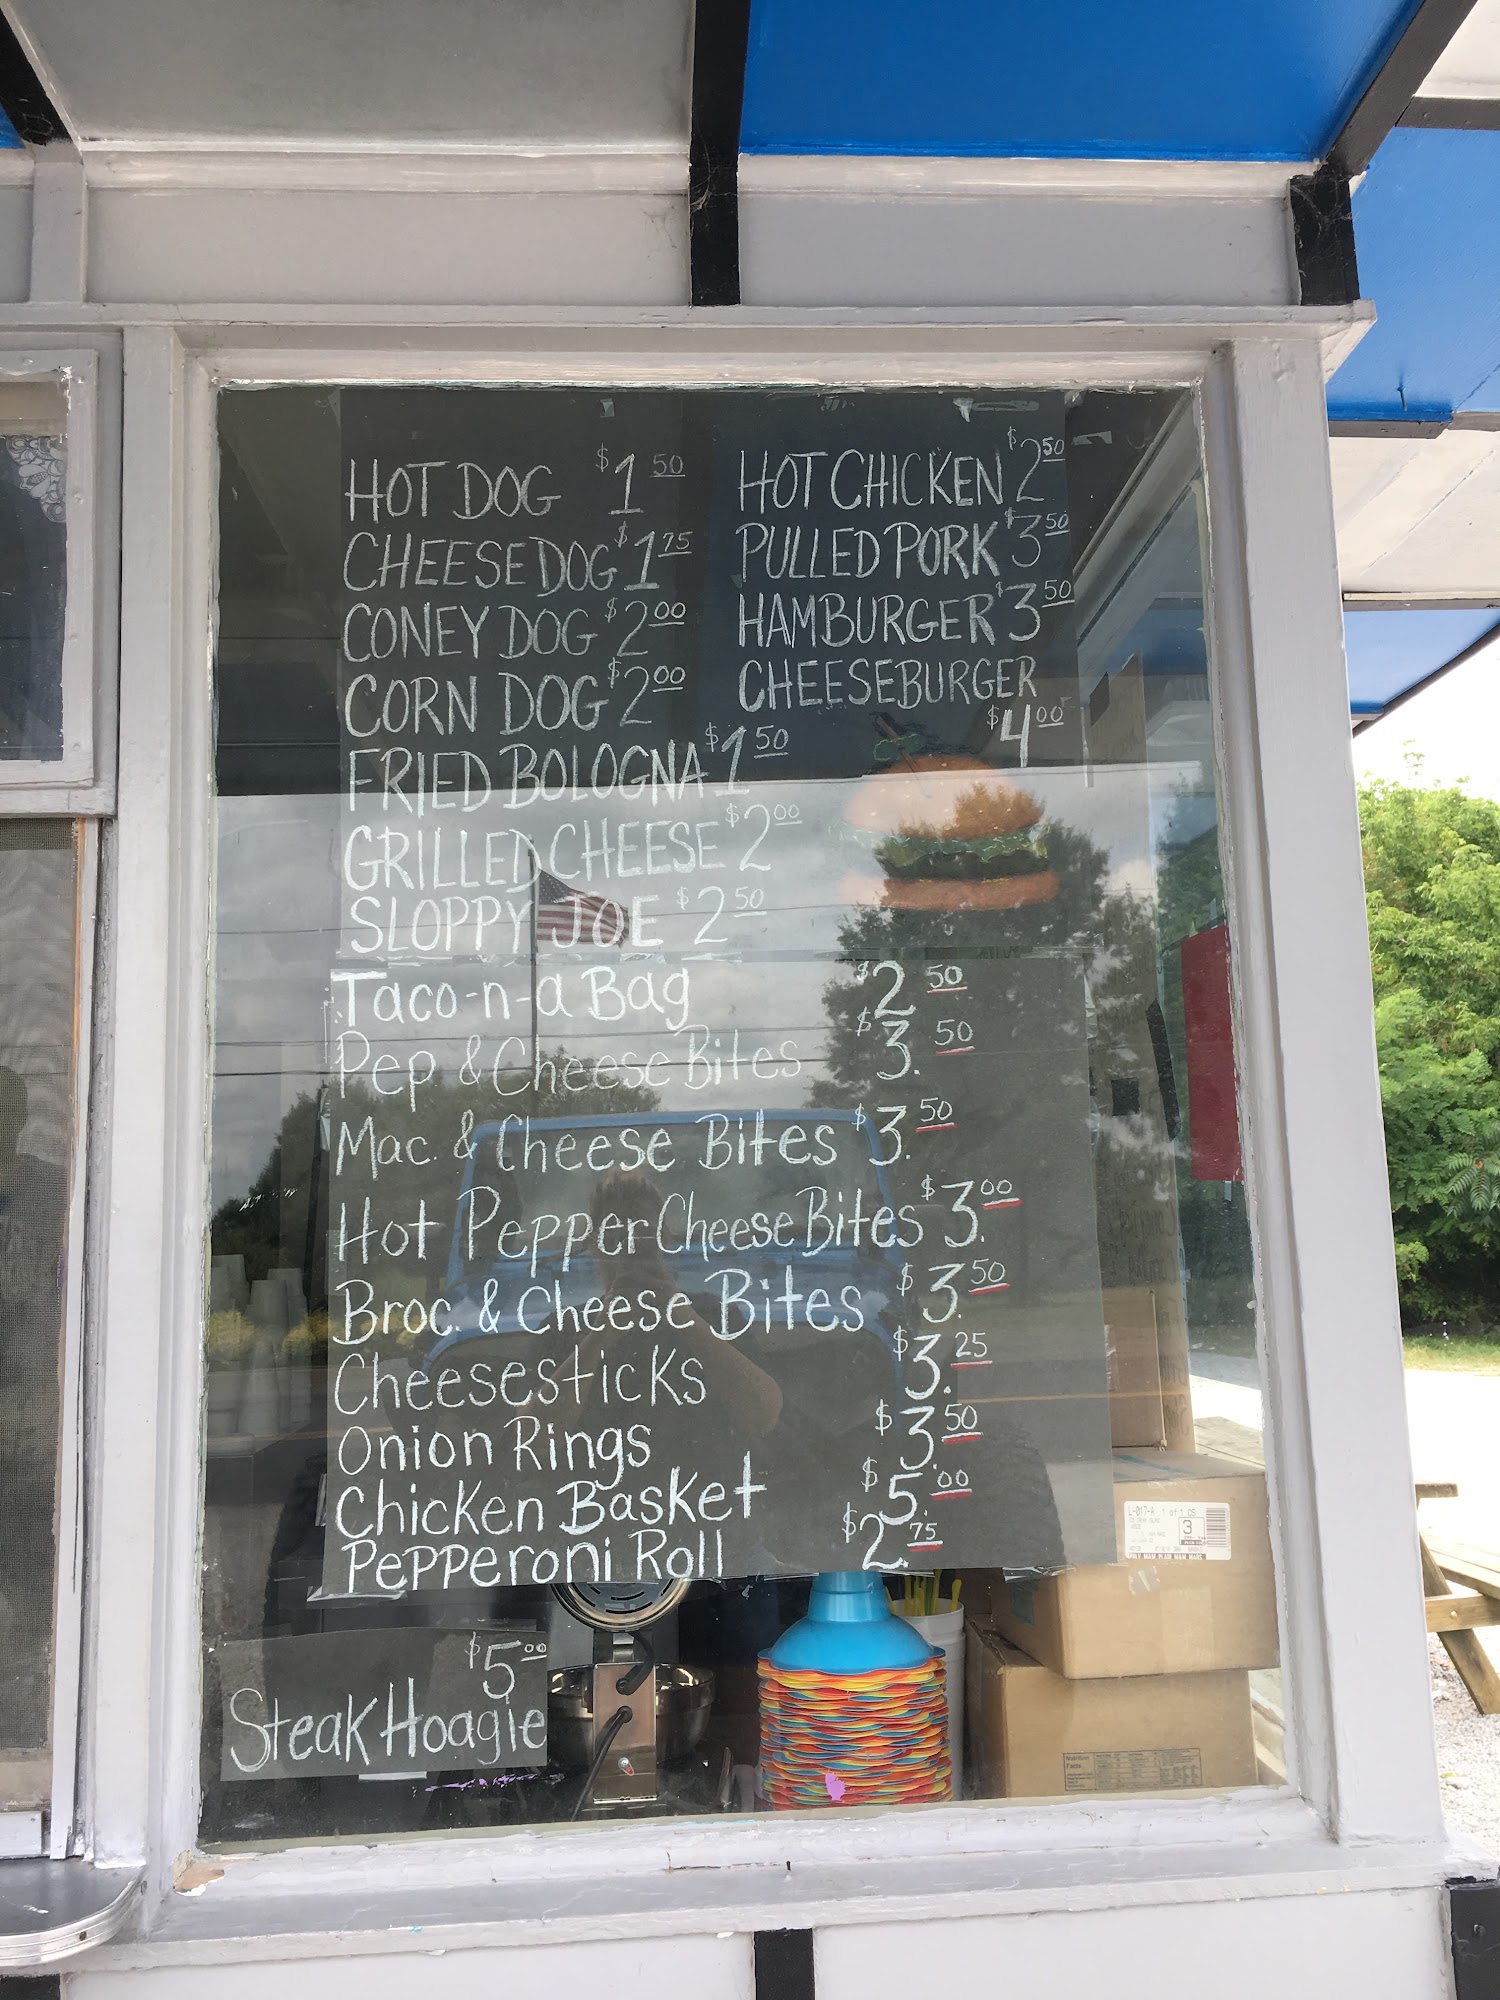 HOT DOG $1 50
CHEESE DOG $1 75
CONEY DOG $2 00
CORN DOG $2 00
FRIED BOLOGNA $1 50
GRILLED CHEESE $2 00
SLOPPY JOE $2 50
HOT CHICKEN $2 50
PULLED PORK $3 50
HAMBURGER $3 50
CHEESEBURGER
$4 00
Taco-n-a Bag $2 50
Pep & Cheese Bites $3. 50
Mac. & Cheese Bites $3. 50
Hot Pepper Cheese Bites $3. 00
Broc. & Cheese Bites $3. 50
Cheesesticks $3. 25
Onion Rings $3. 50
Chicken Basket $5. 00
Pepperoni Roll $2. 75
$5 00
Steak Hoagie
L-017-A 1 of 1 CS
3
Nutrition
Facts